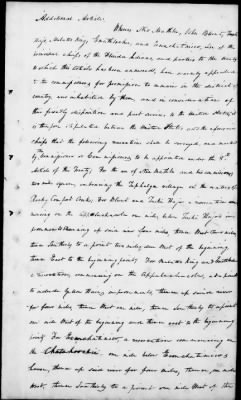 Additional Article.
Whereas Neo Mathla, John Blunt, Tuski
Hajo, Mulatto King, Emathlochee, and Econchatimico, six of the
principal chiefs of the Florida Indians, and parties to the treaty
to which this article has been annexed, have warmly appealed
to the commissioners for permission to remain in the district of
country now inhabited by them, and in consideration of
their friendly disposition and past services to the United States, it
is therefore stipulated between the United States and the aforesaid
chiefs that the following reservations shall be surveyed, and marked
by the commissioner or commissioners to be appointed under the 8th
Article of this Treaty. For the use of Neo Mathla and his connections
two miles square, embracing the Tuphulga village on the waters of
Rocky Comfort Creek. For Blunt and Tuski Hajo a reservation com-
mencing on the Appalachicola one mile below Tuski Hajo's im-
provements running up said river four miles, thence West two miles,
thence Southerly to a point two miles due West of the beginning,
thence East to the beginning point. For Mulatto King and Emathlochee
a reservation commencing on the Appalachicola, at a point
to include Yellow Hair's improvements, thence up said river
for four miles, thence West one mile, thence Southerly to a point
one mile West of the beginning and thence east to the beginning
point. For Econchatimico, a reservation commencing on
the Chatahoochie one mile below Econchatimico's
house, thence up said river for four miles, thence one mile
West, thence Southerly to a point one mile West of the